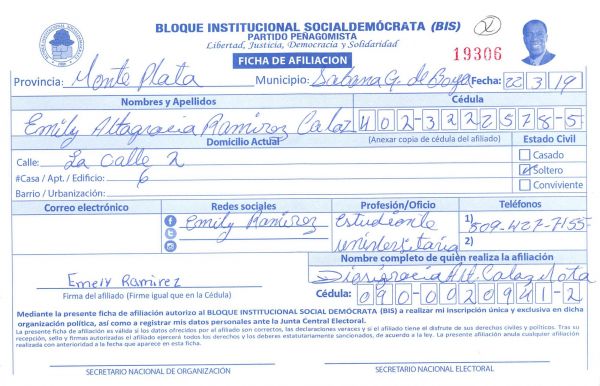 BLOQUE INSTITUCIONAL SOCIALDEMÓCRATA (BIS)
PARTIDO PEÑAGOMISTA
Libertad, Justicia, Democracia y Solidaridad
FICHA DE AFILIACION
19306
Provincia: Monte Plata Municipio: Sabana G. de Boya Fecha: 22 3 19
Nombres y Apellidos Cédula
Emily Altagracia Ramirez 402-3222578-5
Domicilio Actual (Anexar copia de cédula del afiliado) Estado Civil
Calle: La Calle 2 Casado
#Casa / Apt. / Edificio: 6 Soltero
Barrio / Urbanización: Conviviente
Correo electrónico Redes sociales Profesión/Oficio Teléfonos
Emily Ramirez Estudiante 1) 809-427-7155
2)
Nombre completo de quien realiza la afiliación
Emely Ramirez
Firma del afiliado (Firme igual que en la Cédula) Cédula: 090-0020941-2
Mediante la presente ficha de afiliación autorizo al BLOQUE INSTITUCIONAL SOCIAL DEMÓCRATA (BIS) a realizar mi inscripción única y exclusiva en dicha
organización política, así como a registrar mis datos personales ante la Junta Central Electoral.
La presente ficha de afiliación es válida si los datos ofrecidos por el afiliado son correctos, las declaraciones veraces y si el afiliado tiene el disfrute de sus derechos civiles y políticos. Tras su
recepción, sello y firmas autorizadas el afiliado ejercerá todos los derechos y los deberes estatutariamente sancionados, de acuerdo a la ley. La presente afiliación anula cualquier afiliación
realizada con anterioridad a la fecha que aparece en esta ficha.
SECRETARIO NACIONAL DE ORGANIZACIÓN SECRETARIO NACIONAL ELECTORAL